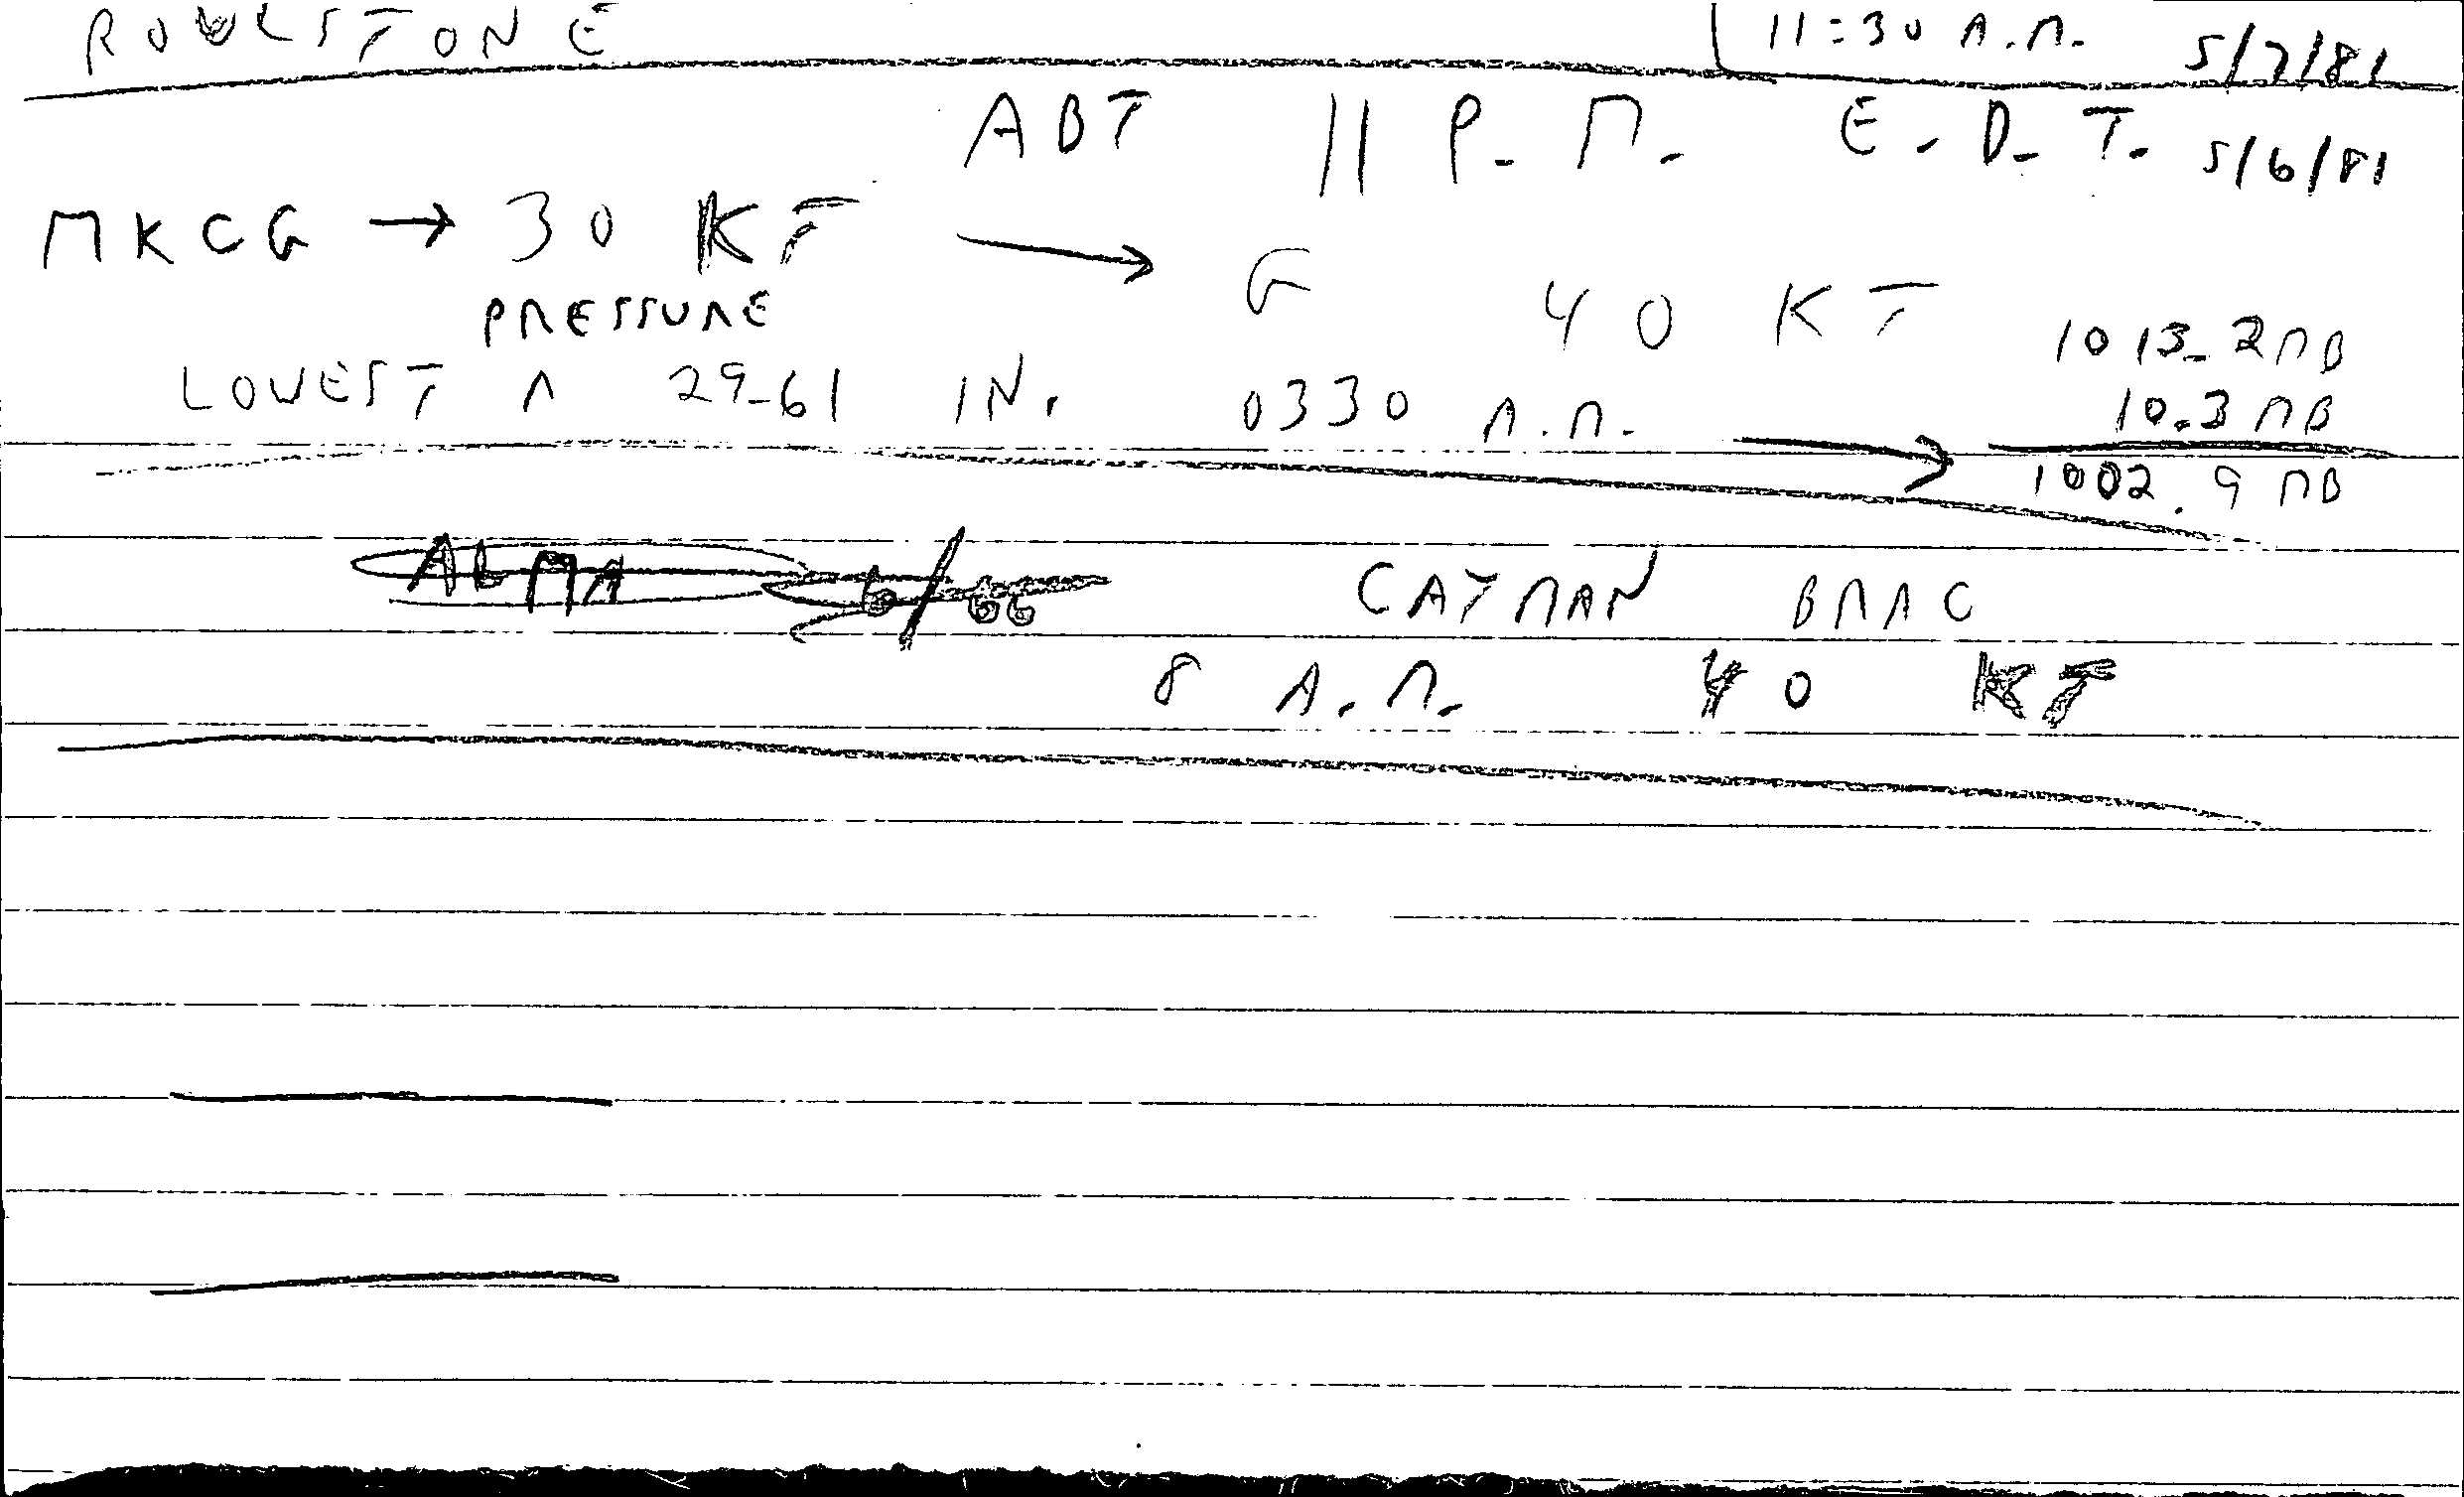 ROWLSTONE 11:30 A.M. 5/7/81
ABT 11 P.M. E.D.T. 5/6/81
MKCG → 30 KT → G 40 KT
PRESSURE
LOWEST ∧ 29.61 IN. 0330 A.M. → 1013.2 MB
10.3 MB
1002.9 MB
ALMA 6/66 CAYMAN BRAC
8 A.M. 40 KT